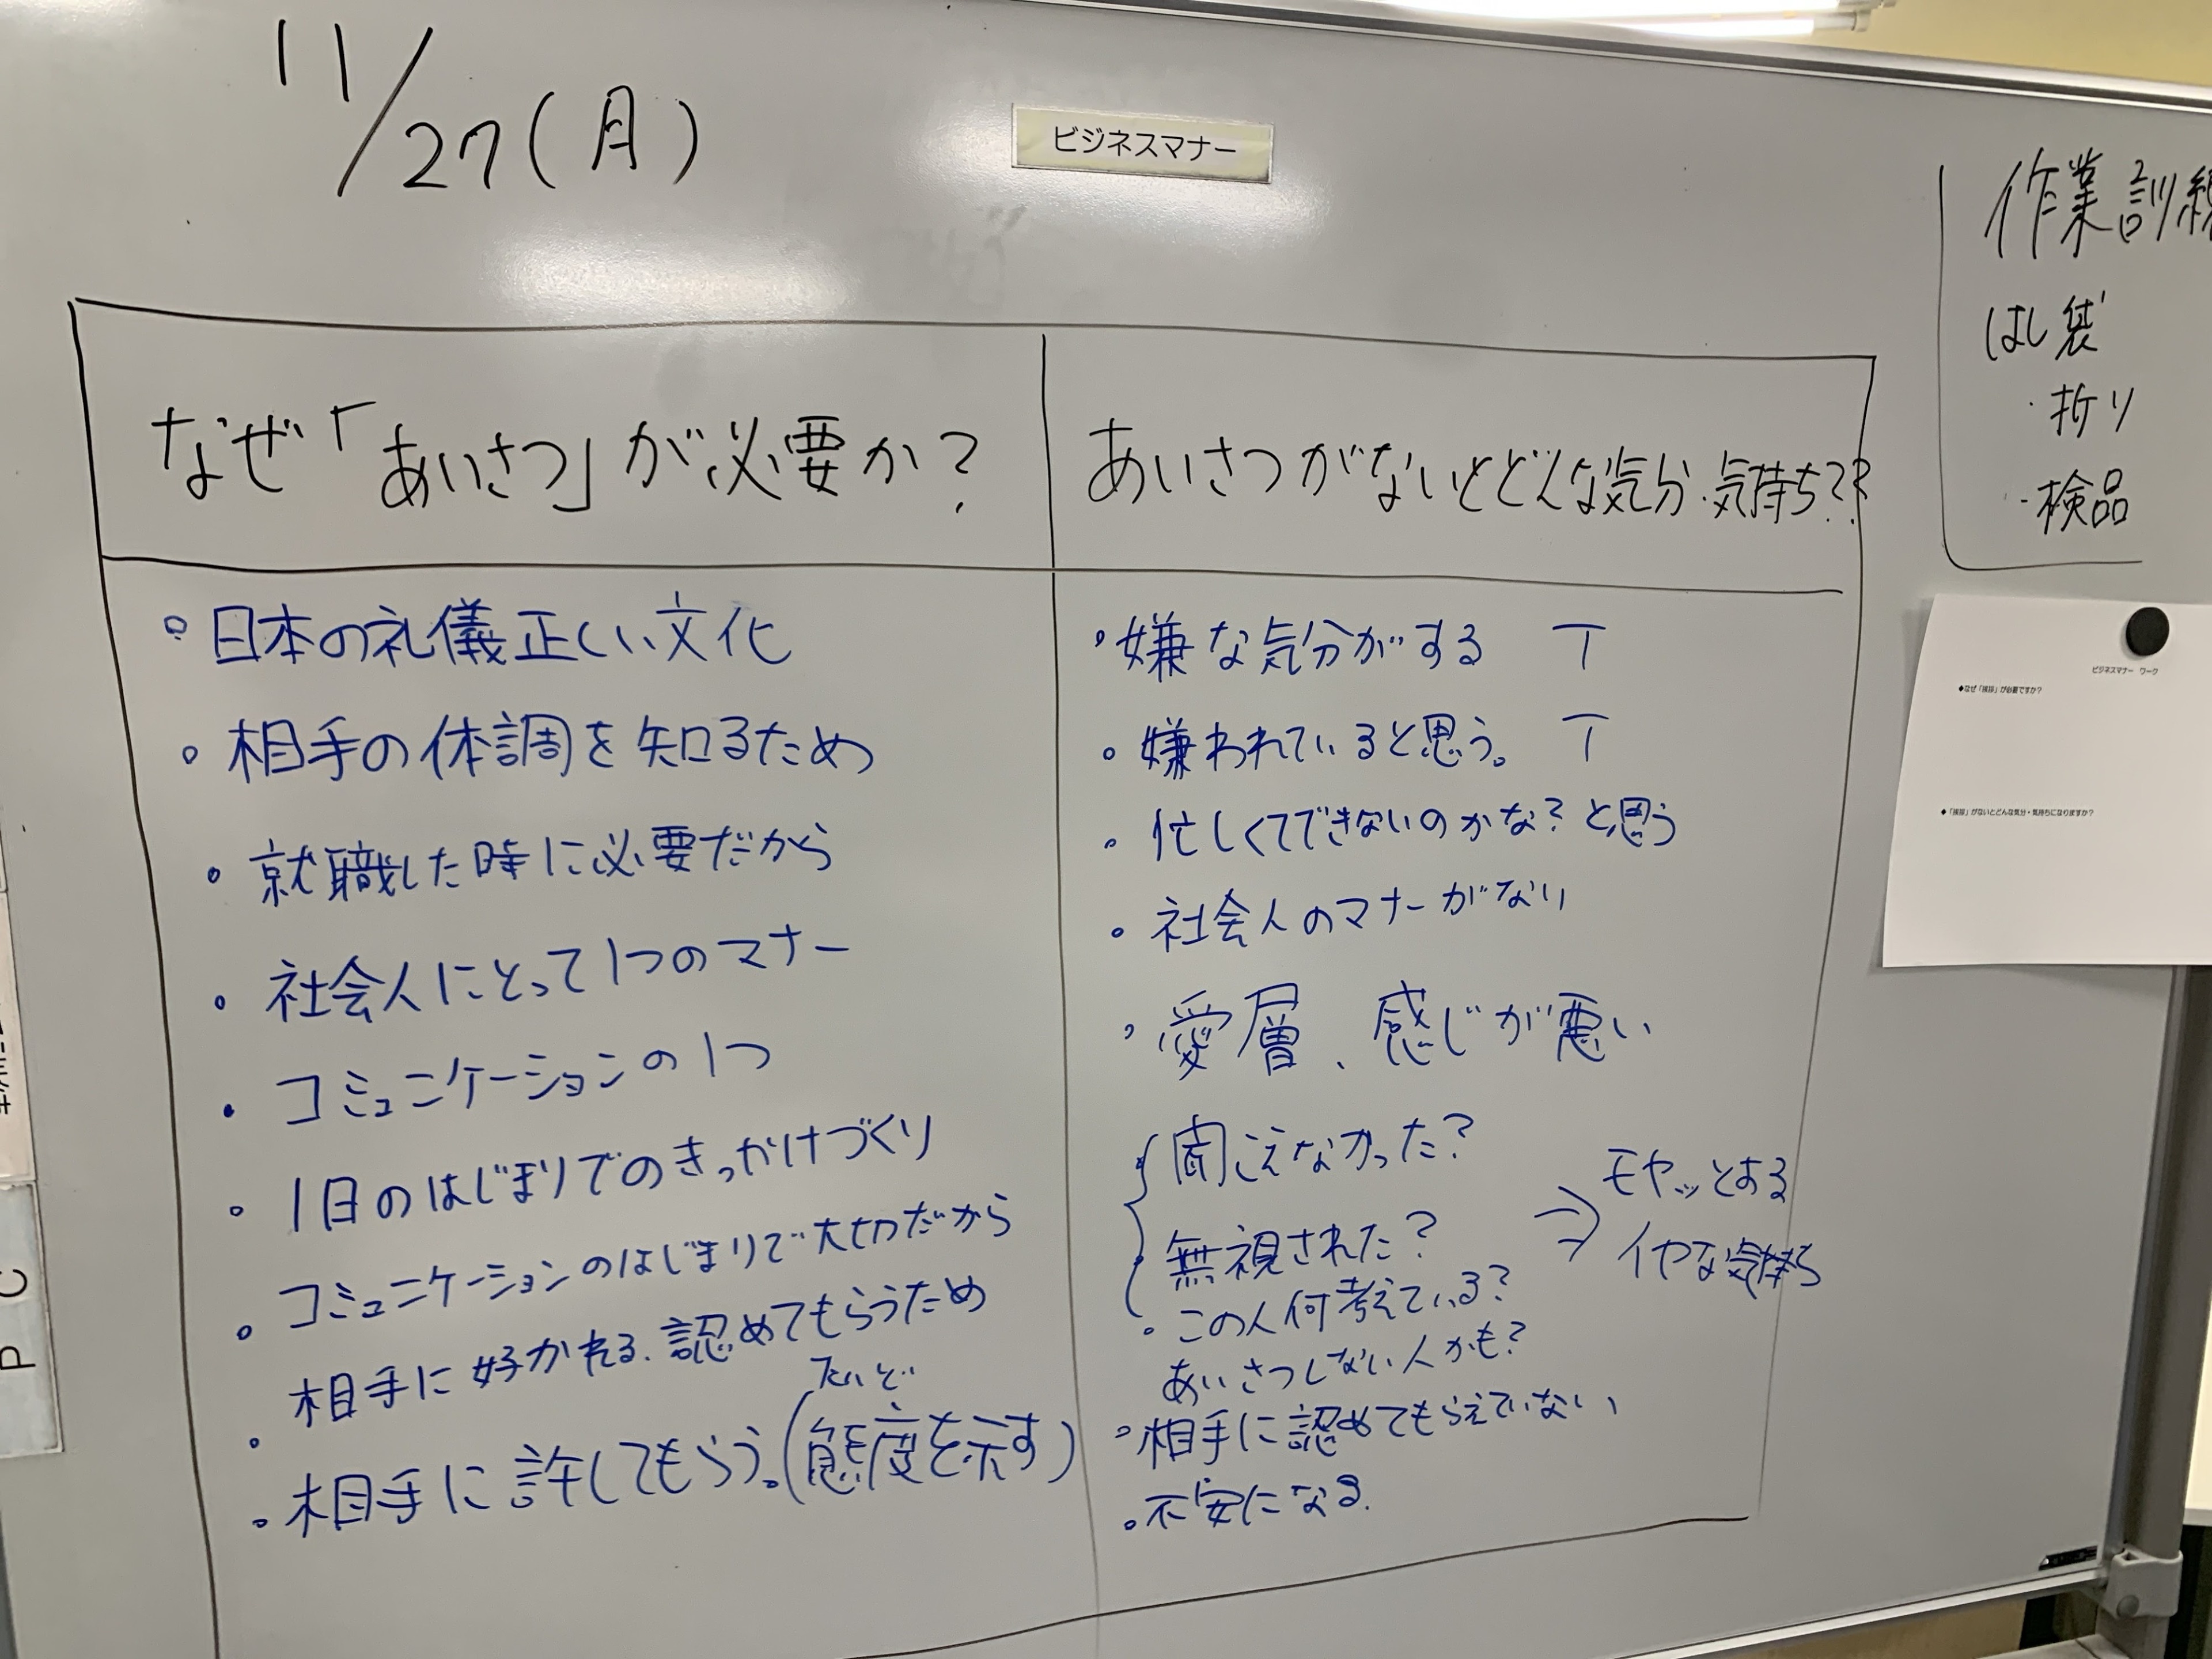 11/27(月)
ビジネスマナー
なぜ「あいさつ」が必要か?
・日本の礼儀正しい文化
・相手の体調を知るため
・就職した時に必要だから
・社会人にとって1つのマナー
・コミュニケーションの1つ
・1日のはじまりでのきっかけづくり
・コミュニケーションのはじまりで大切だから
・相手に好かれる、認めてもらうため
たいど
・相手に許してもらう。(態度を示す)
あいさつがないとどんな気分・気持ち??
・嫌な気分がする T
・嫌われていると思う。 T
・忙しくてできないのかな?と思う
・社会人のマナーがない
・愛層、感じが悪い
聞こえなかった?
無視された?
⇒ モヤッとする
イヤな気持ち
・この人何考えている?
あいさつしない人かも?
・相手に認めてもらえていない
・不安になる.
作業訓練
はし袋
・折り
・検品
ビジネスマナー ワーク
◆なぜ「挨拶」が必要ですか?
◆「挨拶」がないとどんな気分・気持ちになりますか?
P C